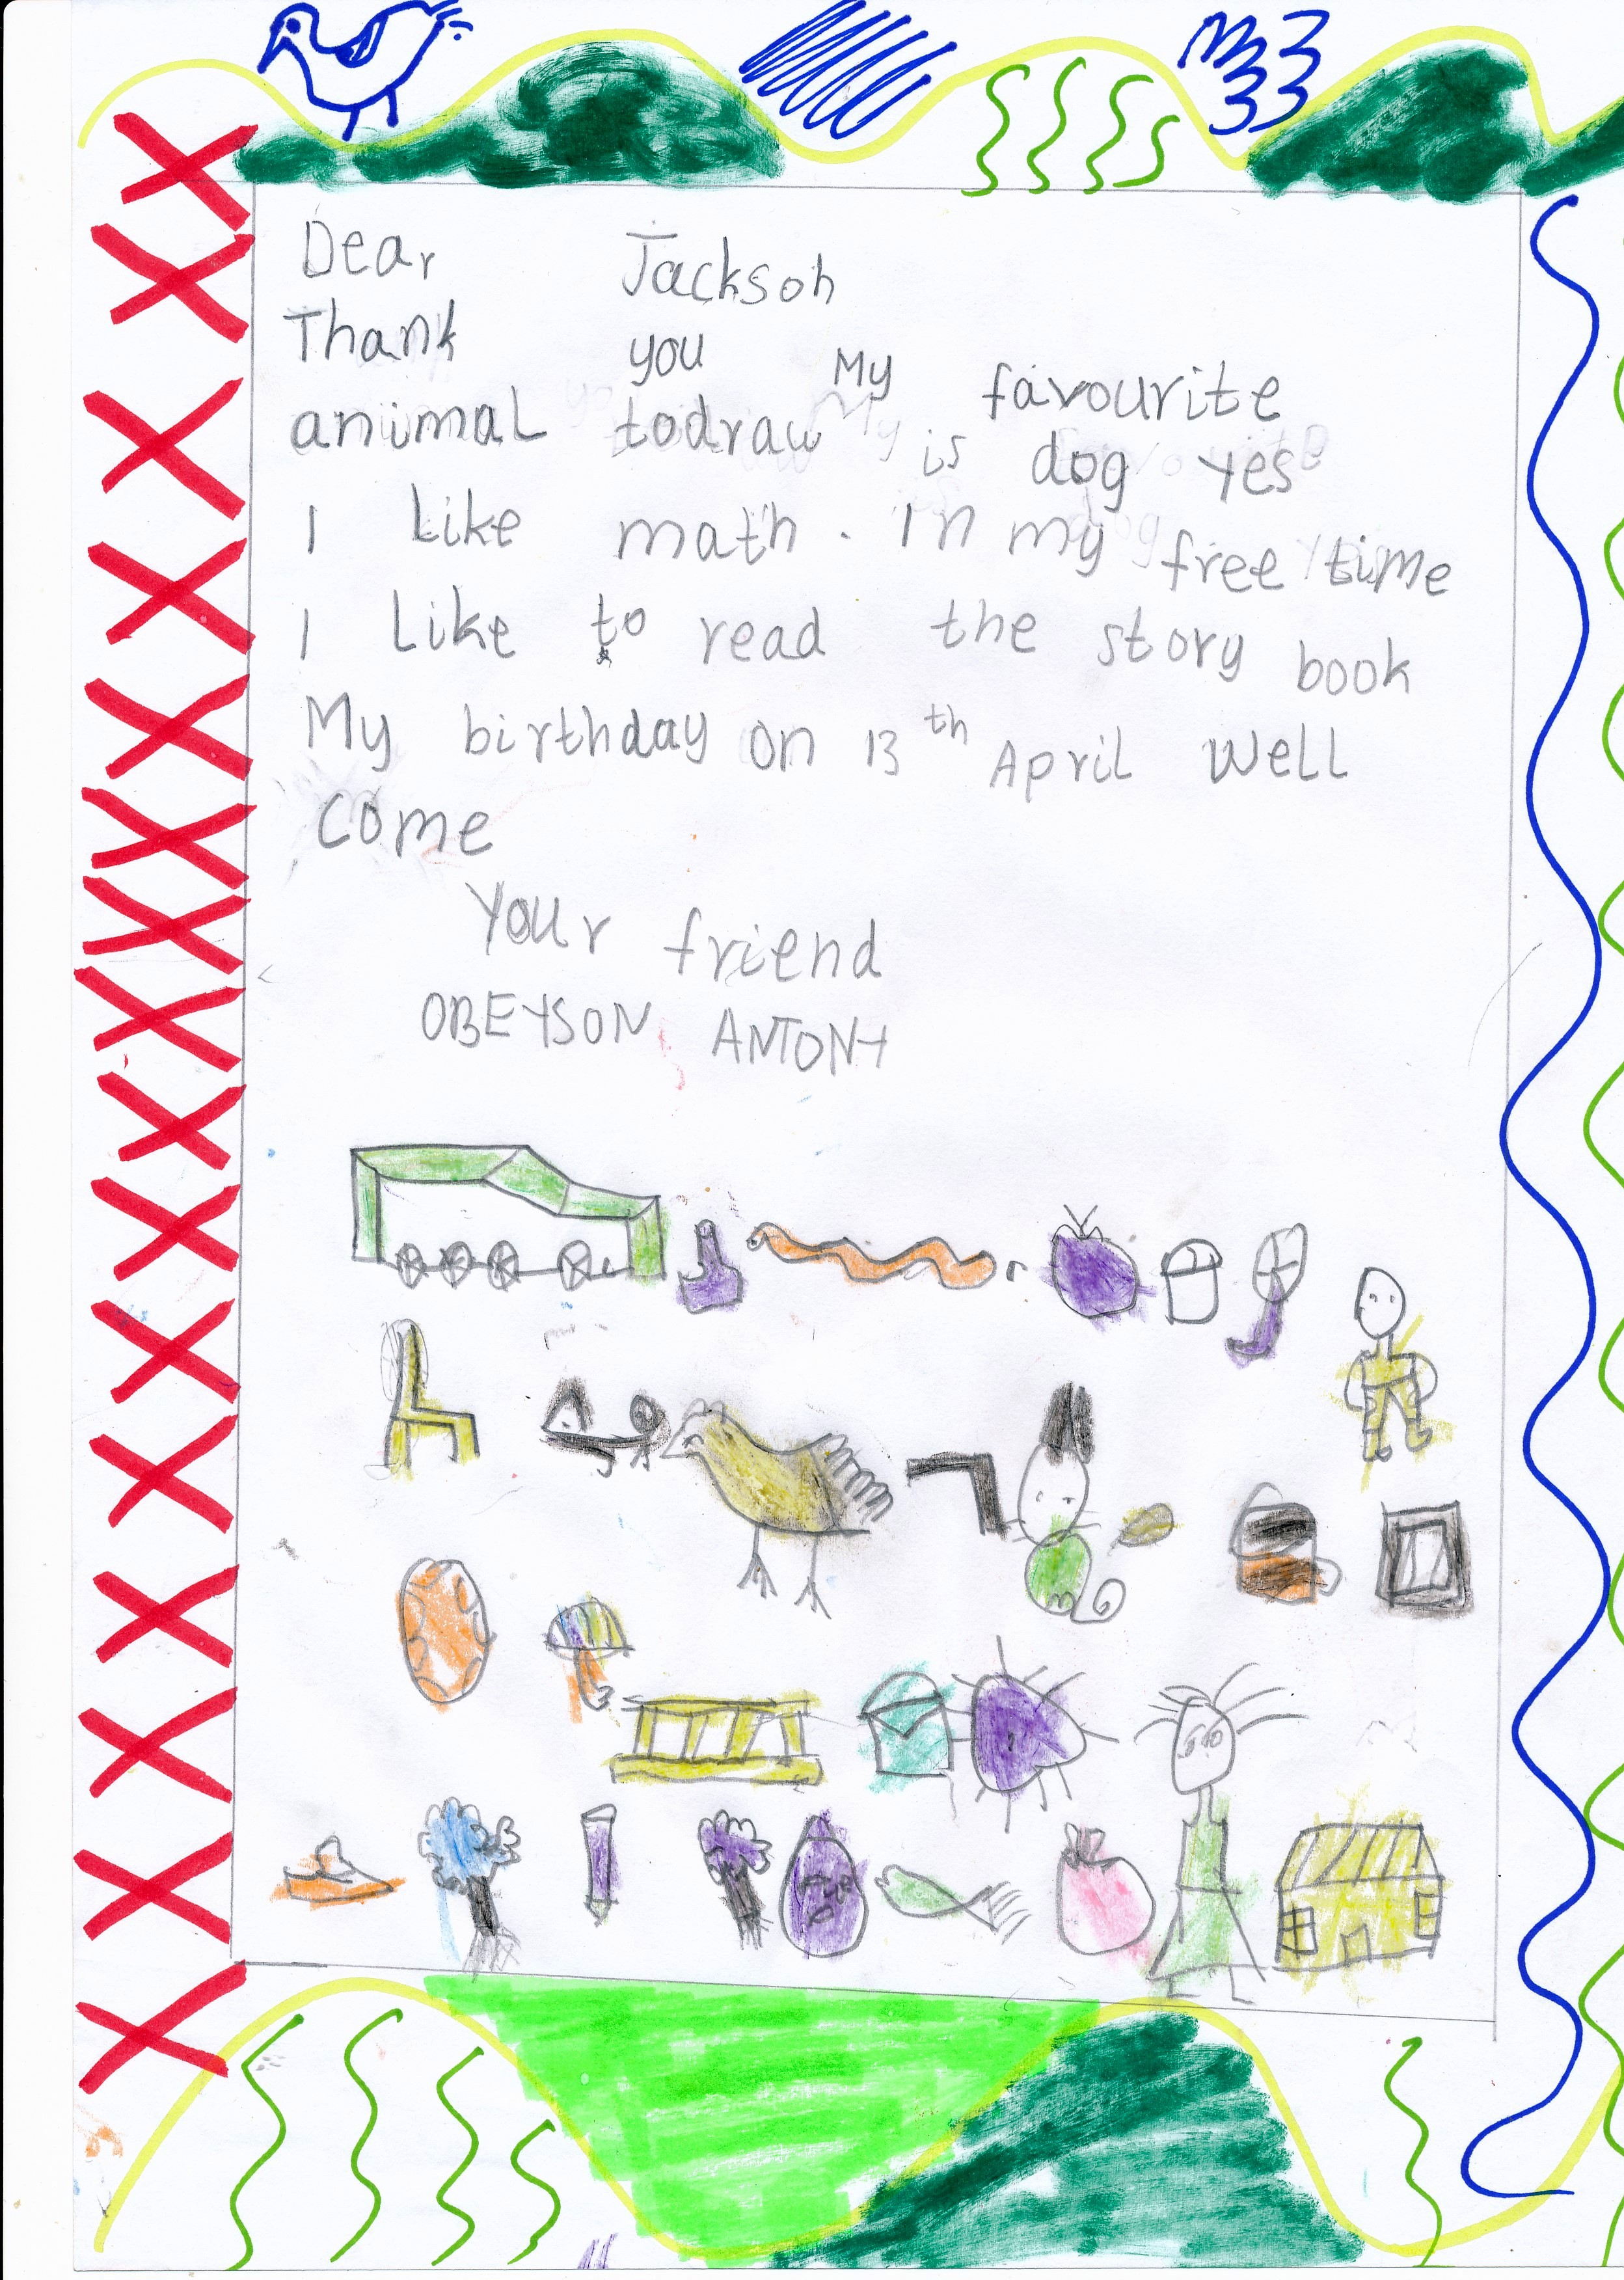 Dear Jackson
Thank you My favourite
animal todraw is dog yes
I Like math. In my free time
I Like to read the story book
My birthday on 13th April well
come
Your friend
OBEYSON ANTONY